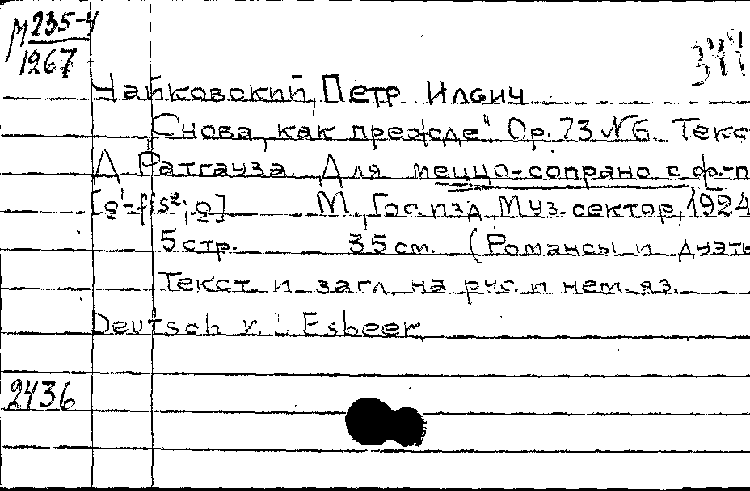 М 235-4
1267
344
Чайковский, Петр Илич
"Снова, как прежде" Op. 73 №6. Текс
Д. Ратгауза. Для меццо-сопрано с ф-п
[e¹-fis²; a] М., Гос. изд. Муз. сектор, 1924
5 стр. 35 см. (Романсы и дуэты
Текст и загл. на рус. и нем. яз.
Deutsch v. L. Esbeer
2436